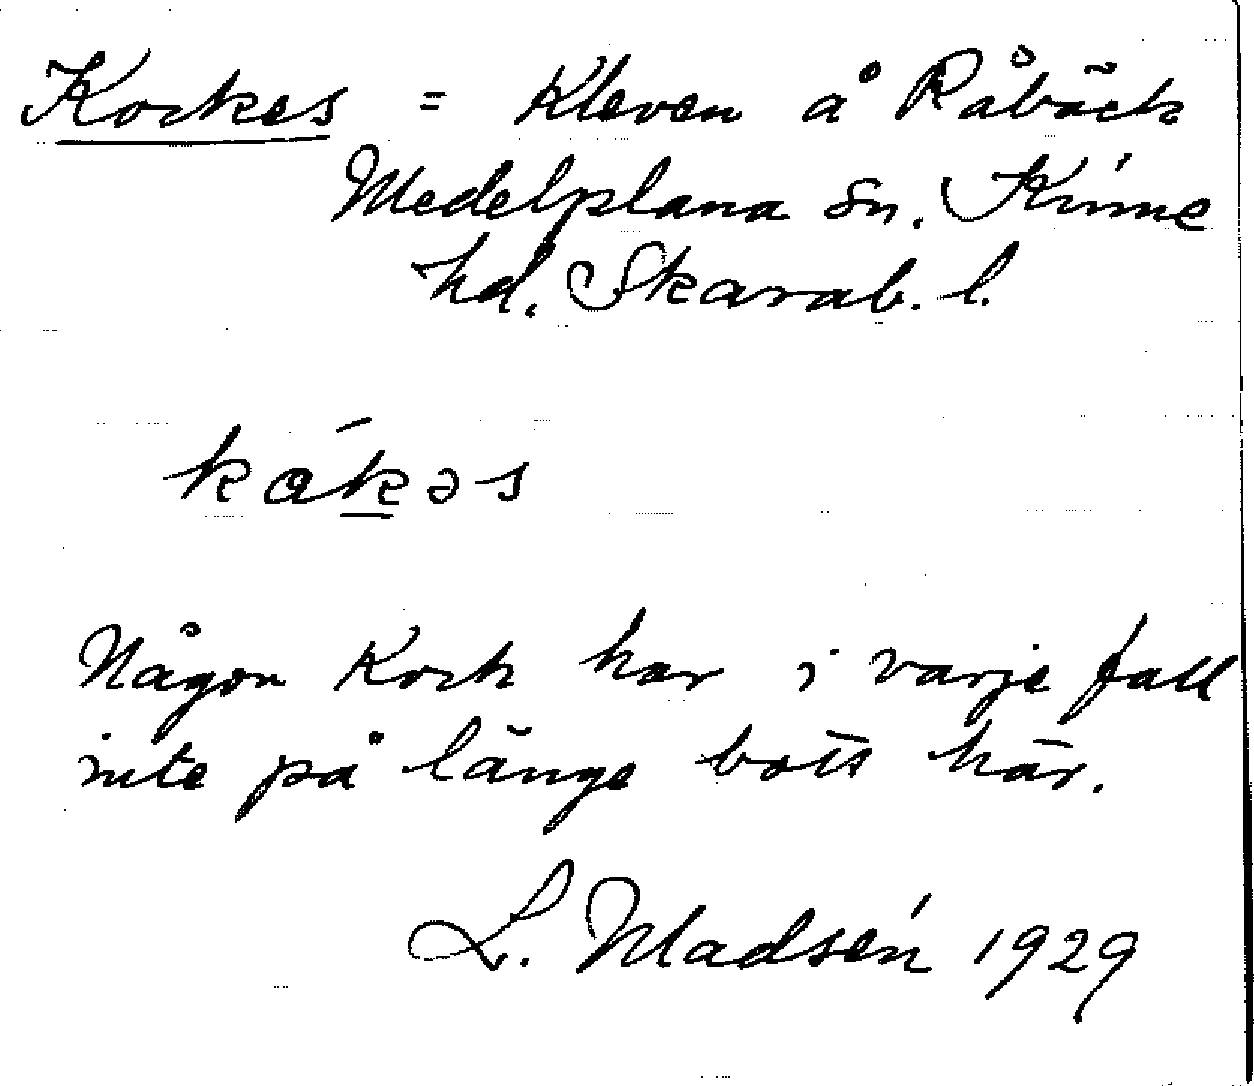 Kockes = Kleven å Råbäck
Medelplana sn. Kinne
hd. Skarab. l.
kakəs
Någon Kock har i varje fall
inte på länge bott här.
L. Madsén 1929